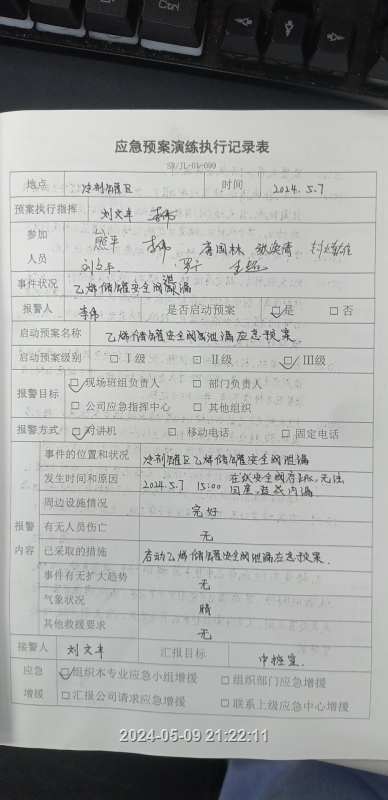 应急预案演练执行记录表
SR/JL-01-099
地点 冷剂罐区 时间 2024.5.7
预案执行指挥 刘文丰 李伟
参加 熊平 李伟
人员 刘文丰
事件状况 乙烯储罐安全阀泄漏
报警人 李伟 是否启动预案 ☑是 □否
启动预案名称 乙烯储罐安全阀泄漏应急预案
启动预案级别 □Ⅰ级 □Ⅱ级 ☑Ⅲ级
报警目标 ☑现场班组负责人 □部门负责人
□公司应急指挥中心 □其他组织
报警方式 ☑对讲机 □移动电话 □固定电话
报警内容
事件的位置和状况 冷剂罐区乙烯储罐安全阀泄漏
发生时间和原因 2024.5.7 15:00 在线安全阀存在, 无法
回座, 造成内漏
周边设施情况 完好
有无人员伤亡 无
已采取的措施 启动乙烯储罐安全阀泄漏应急预案.
事件有无扩大趋势 无
气象状况 晴
其他救援要求 无
接警人 刘文丰 汇报目标 中控室
应急 ☑组织本专业应急小组增援 □组织部门应急增援
增援 □汇报公司请求应急增援 □联系上级应急中心增援
2024-05-09 21:22:11